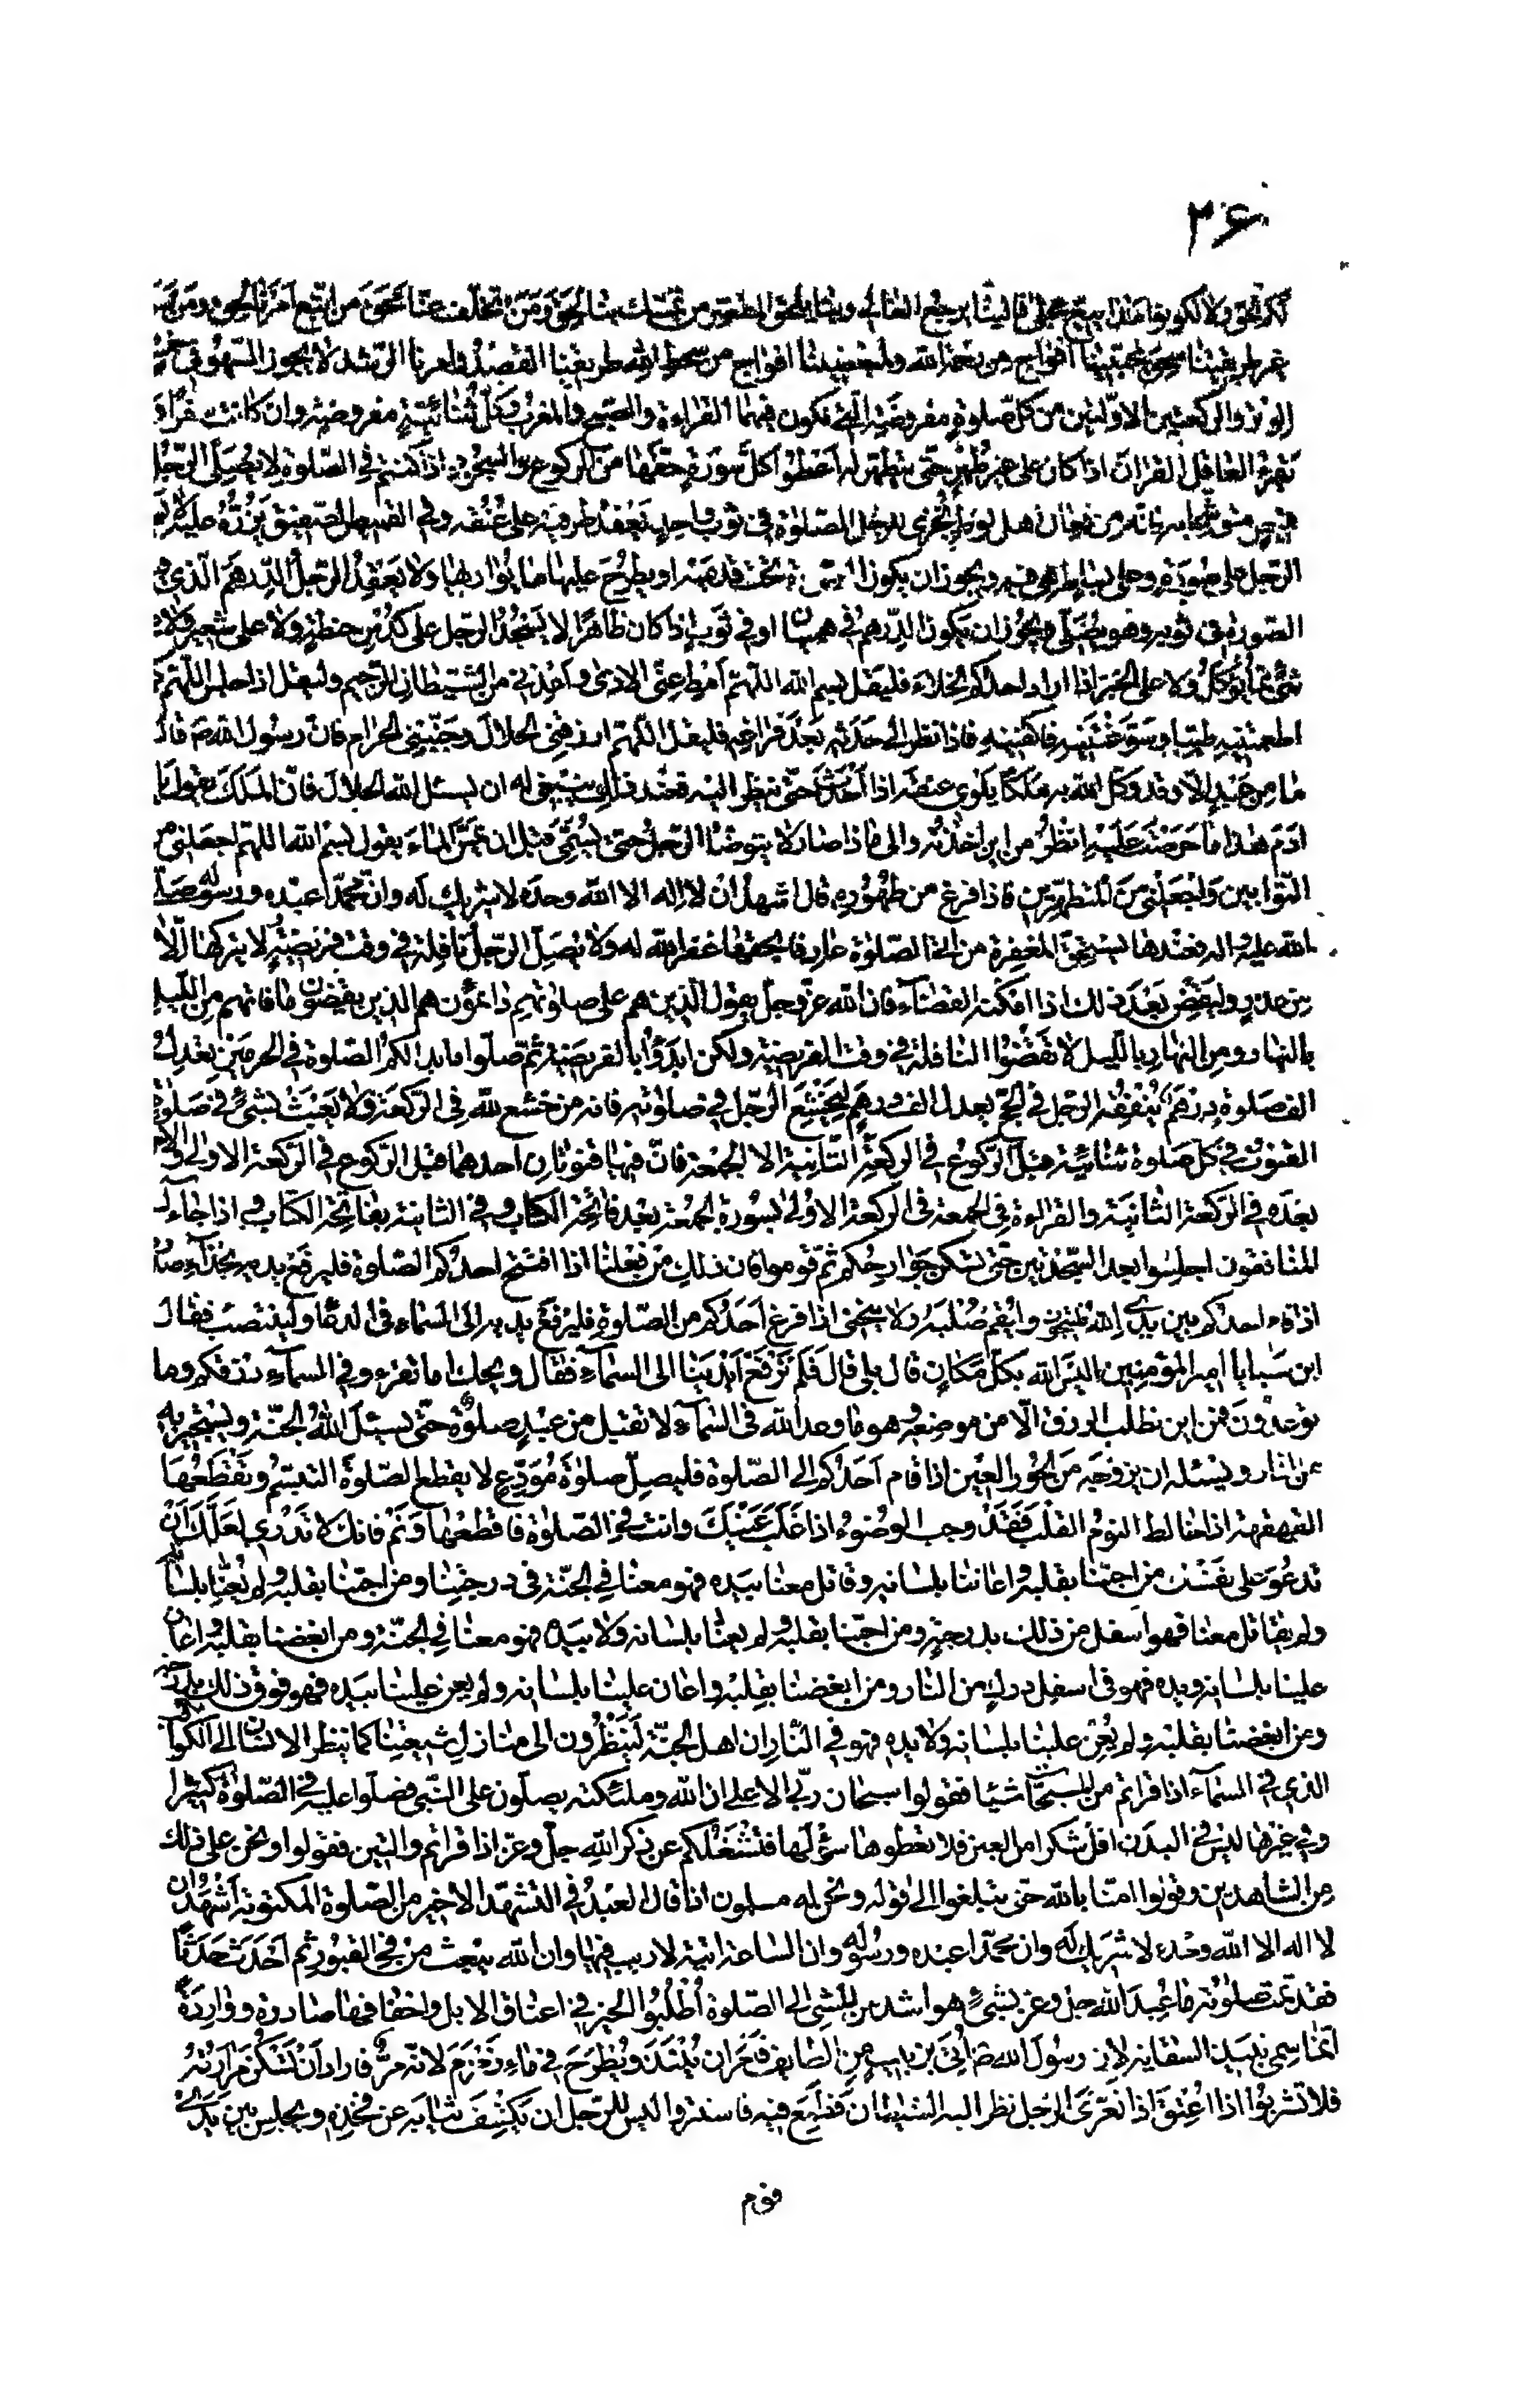 ۲۶
ولا تكونوا يرجع الغالي وبنا يلحق من تمسك بنا لحق ومن تخلف عنا محق من اتبع امرنا لحق ومن
غير طريقتنا سحق لمحبينا افواج من رحمة الله ولمبغضينا افواج من سخط الله طريقنا القصد وامرنا الرشد لا يجوز السهو في خمس
الوتر والركعتين الاولتين من كل صلوة مفروضة التي تكون فيهما القراءة والصبح والمغرب وكل ثنائية مفروضة وان كانت سفرا ولا
تقرء العاقل القران اذا كان على غير طهر حتى يتطهر له اعطوا كل سورة حقها من الركوع والسجود اذا كنتم في الصلوة لا يصلي الرجل
في قميص متوشحا به فانه من فعال اهل لوط تجزي للرجل الصلوة في ثوب واحد يعقد طرفيه على عنقه وفي القميص الضيق يزره عليه لا
الرجل على صورة وعلى بساط هي فيه ويجوز ان يكون تحت قدميه او يطرح عليها ما يواريها ولا يعقد الرجل الدرهم الذي فيه
الصورة في ثوبه وهو يصلي ويجوز ان يكون الدرهم في هميان او في ثوب اذا كان ظاهرا لا يسجد الرجل على كدس حنطة ولا على شعير ولا
شئ مما يؤكل ولا على الخبز اذا اراد احدكم الخلاء فليقل بسم الله اللهم امط عني الاذى واعذني من الشيطان الرجيم وليقل اذا جلس اللهم كما
اطعمتنيه طيبا وسوغتنيه فاكفنيه فاذا نظر الى حدثه بعد فراغه فليقل اللهم ارزقني الحلال وجنبني الحرام فان رسول الله ص قال
ما من عبد الا وقد وكل الله به ملكا يلوي عنقه اذا احدث حتى ينظر اليه فعند ذلك ينبغي له ان يسئل الله الحلال فان الملك يقول يا
ادم هذا ما حرصت عليه انظر من اين اخذته والى ماذا صار لا يتوضا الرجل حتى يسمي قبل ان يمس الماء يقول بسم الله اللهم اجعلني من
التوابين واجعلني من المتطهرين فاذا فرغ من طهوره قال اشهد ان لا اله الا الله وحده لا شريك له وان محمدا عبده ورسوله صلى
الله عليه واله فعندها يستحق المغفرة من اتى الصلوة عارفا بحقها غفر الله له ولا يصلي الرجل نافلة في وقت فريضة لا يتركها الا
من عذر وليقض بعد ذلك اذا امكنه القضاء فان الله عز وجل يقول الذين هم على صلوتهم دائمون هم الذين يقضون ما فاتهم من الليل
بالنهار ومن النهار بالليل لا تقضوا النافلة في وقت الفريضة ولكن ابدؤا بالفريضة ثم صلوا ما بدا لكم الصلوة في الحرمين تعدل
الف صلوة درهم ينفقه الرجل في الحج يعدل الف درهم ليخشع الرجل في صلوته فانه من خشع لله في الركعة فلا يعبث بشئ في صلوة
القنوت في كل صلوة ثنائية قبل الركوع في الركعة الثانية الا الجمعة فان فيها قنوتان احدهما قبل الركوع في الركعة الاولى والاخر
بعده في الركعة الثانية والقراءة في الجمعة في الركعة الاولى بسورة الجمعة بعد فاتحة الكتاب وفي الثانية بفاتحة الكتاب واذا جاءك
المنافقون اجلسوا بعد السجدتين حتى تسكن جوارحكم ثم قوموا فان ذلك من فعلنا اذا افتتح احدكم الصلوة فليرفع يديه بحذاء صدره
اذا قام احدكم بين يدي الله فليتحر وليقم صلبه ولا ينحني اذا فرغ احدكم من الصلوة فليرفع يديه الى السماء في الدعاء ولينتصب فقال
ابن سبا يا امير المؤمنين اليس الله بكل مكان قال بلى قال فلم نرفع ايدينا الى السماء فقال ويحك اما تقرء وفي السماء رزقكم وما
توعدون فمن اين نطلب الرزق الا من موضعه وهو ما وعد الله في السماء لا تقبل من عبد صلوة حتى يسئل الله الجنة ويستجير به
من النار ويسئله ان يزوجه من الحور العين اذا قام احدكم الى الصلوة فليصل صلوة مودع لا يقطع الصلوة التبسم وتقطعها
القهقهة اذا خالط النوم القلب فقد وجب الوضوء اذا غلب عينك وانت في الصلوة فاقطعها ونم فانك لا تدري لعلك ان
تدعو على نفسك من احبنا بقلبه واعاننا بلسانه وقاتل معنا بيده فهو معنا في الجنة في درجتنا ومن احبنا بقلبه ولم يعنا بلسانه
ولم يقاتل معنا فهو اسفل من ذلك بدرجة ومن احبنا بقلبه ولم يعنا بلسانه ولا بيده فهو معنا في الجنة ومن ابغضنا بقلبه واعان
علينا بلسانه ويده فهو في اسفل درك من النار ومن ابغضنا بقلبه واعان علينا بلسانه ولم يعن علينا بيده فهو فوق ذلك بدرجة
ومن ابغضنا بقلبه ولم يعن علينا بلسانه ولا يده فهو في النار ان اهل الجنة لينظرون الى منازل شيعتنا كما ينظر الانسان الى الكواكب
الذي في السماء اذا قراتم من المسبحات شيئا فقولوا سبحان ربي الاعلى ان الله وملئكته يصلون على النبي فصلوا عليه في الصلوة كثيرا
وفي غيرها ليس في البدن اقل شكرا من العين فلا تعطوها سؤلها فتشغلكم عن ذكر الله جل وعز اذا قراتم والتين فقولوا ونحن على ذلك
من الشاهدين وقولوا امنا بالله حتى يبلغوا الى قوله ونحن له مسلمون اذا قال العبد في التشهد الاخير من الصلوة المكتوبة اشهد ان
لا اله الا الله وحده لا شريك له وان محمدا عبده ورسوله وان الساعة اتية لا ريب فيها وان الله يبعث من في القبور ثم احدث حدثا
فقد تمت صلوته ما عبد الله جل وعز بشئ هو اشد من المشي الى الصلوة اطلبوا الخير في اعناق الابل واخفافها صادرة وواردة
انما سمي نبيذ السقاية لان رسول الله ص اتي بزبيب من الطايف فامر ان ينبذ ويطرح في ماء زمزم لانه مر فاراد ان تسكن مرارته
فلا تشربوا اذا اعتق اذا تعرى الرجل نظر اليه الشيطان فطمع فيه فاستتروا ليس للرجل ان يكشف ثيابه عن فخذه ويجلس بين يدي
قوم